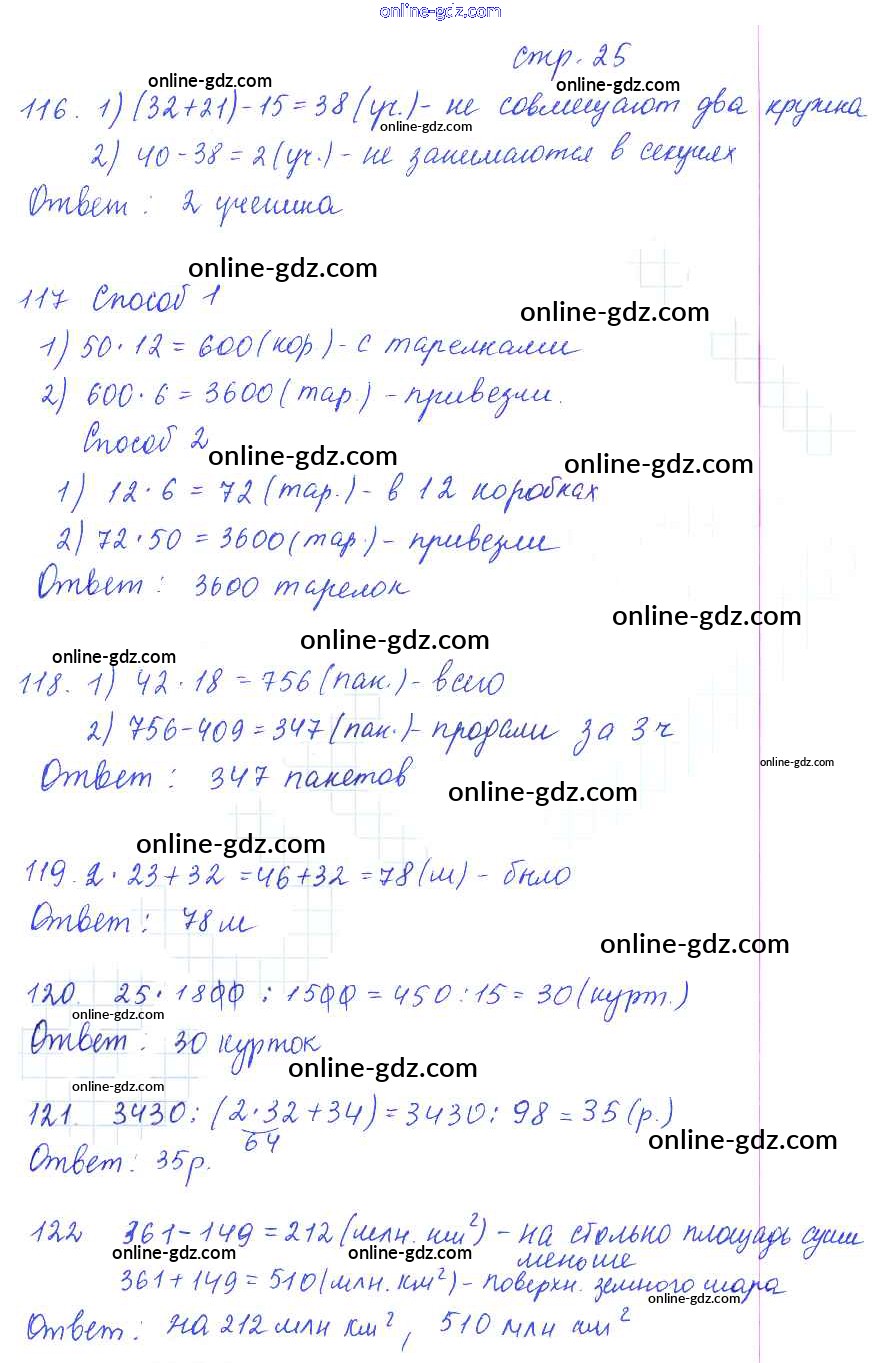 online-gdz.com
стр. 25
online-gdz.com online-gdz.com
116. 1) (32+21)-15=38 (уч.)- не совмещают два кружка
online-gdz.com
2) 40-38=2 (уч.)- не занимаются в секциях
Ответ: 2 ученика
online-gdz.com
117 Способ 1
online-gdz.com
1) 50·12=600(кор)-с тарелками
2) 600·6=3600(тар.)-привезли.
Способ 2
online-gdz.com online-gdz.com
1) 12·6=72(тар.)-в 12 коробках
2) 72·50=3600(тар.)-привезли
Ответ: 3600 тарелок
online-gdz.com
online-gdz.com
online-gdz.com
118. 1) 42·18=756(пак.)-всего
2) 756-409=347(пак.)-продали за 3ч
online-gdz.com
Ответ: 347 пакетов
online-gdz.com
online-gdz.com
119. 2·23+32=46+32=78(м)-было
Ответ: 78м
online-gdz.com
120. 25·1800:1500=450:15=30(курт.)
online-gdz.com
Ответ: 30 курток
online-gdz.com
online-gdz.com
121. 3430:(2·32+34)=3430:98=35(р.)
64
online-gdz.com
Ответ: 35р.
122 361-149=212(млн. км²)-на столько площадь суши
online-gdz.com online-gdz.com
меньше
361+149=510(млн. км²)-поверхн. земного шара
online-gdz.com
Ответ: на 212 млн км², 510 млн км²